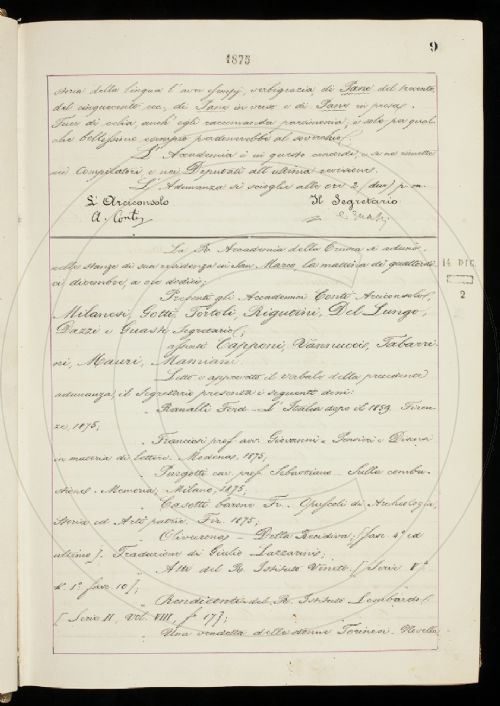 9
1875
storia della lingua l'aver esempj, verbigrazia di Pane del trecento,
del cinquecento ecc., di Pane in verso e di Pane in prosa.
che bellissimo esempio
L'Accademia è in questo concorde, e se ne rimette
ai Compilatori e ai Deputati all'ultima revisione.
L'Adunanza si scioglie alle ore 2 (due) p. m.
L'Arciconsolo Il Segretario
A. Conti
La R. Accademia della Crusca si aduna
nelle stanze di sua residenza in San Marco la mattina de' quattordi-
ci dicembre, a ore dodici;
14 DIC.
2
Presenti gli Accademici Conti Arciconsolo,
Milanesi, Gotti, Tortoli, Rigutini, Del Lungo,
Dazzi e Guasti Segretario;
assenti Capponi, Vannucci, Tabarri-
ni, Mauri, Mamiani.
Letto e approvato il verbale della precedente
adunanza, il Segretario presenta i seguenti doni:
Ranalli Ferd. - L'Italia dopo il 1859. Firen-
ze, 1875;
Franciosi prof. avv. Giovanni - Pensieri e Discorsi
in materia di lettere. Modena, 1875;
Purgotti cav. prof. Sebastiano - Sulla combu-
stione - Memoria; Milano, 1875;
Casotti barone Fr. - Opuscoli di Archeologia,
Storia ed Arti patrie. Fir. 1875;
Della Recidiva; [fasc. 4° ed
ultimo]. Traduzione di Giulio Lazzarini;
Atti del R. Istituto Veneto. [Serie V.ª
t.° 1.° fasc. 10];
Rendiconti del R. Istituto Lombardo.
[Serie II, Vol. VIII, f.° 17];
Una vendetta delle donne Torinesi - Novella